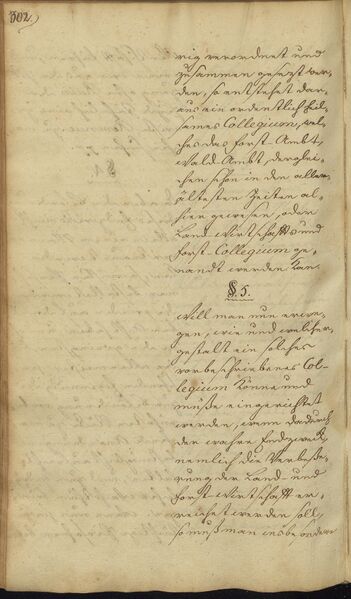 302.
rig verordnet und
zusammen gesezt wer-
den, so entstehet dar-
aus ein ordentlich heil-
sames Collegium, wel-
ches das Forst-Ambt,
Wald-Ambt, derglei-
chen schon in den aller-
ältesten Zeiten al-
hier gewesen, oder
Land-Wirtschaffts und
Forst-Collegium ge-
nandt werden kan.
§. 5.
Will man nun erwe-
gen, wie und welcher-
gestalt ein solches
vorbeschriebenes Col-
legium könne und
müße eingerichtet
werden, wenn dadurch
der wahre Endzweck,
nemlich die Verbeße-
rung der Land- und
Forst-Wirtschafft er-
reichet werden soll,
so muß man insbesondere